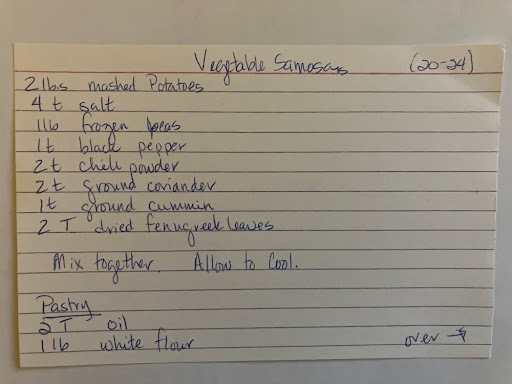 Vegetable Samosas (20-24)
2 lbs mashed Potatoes
4 t salt
1 lb frozen peas
1t black pepper
2t chili powder
2t ground coriander
1t ground cummin
2 T dried fenugreek leaves
Mix together. Allow to Cool.
Pastry
2 T oil
1 lb white flour
over →